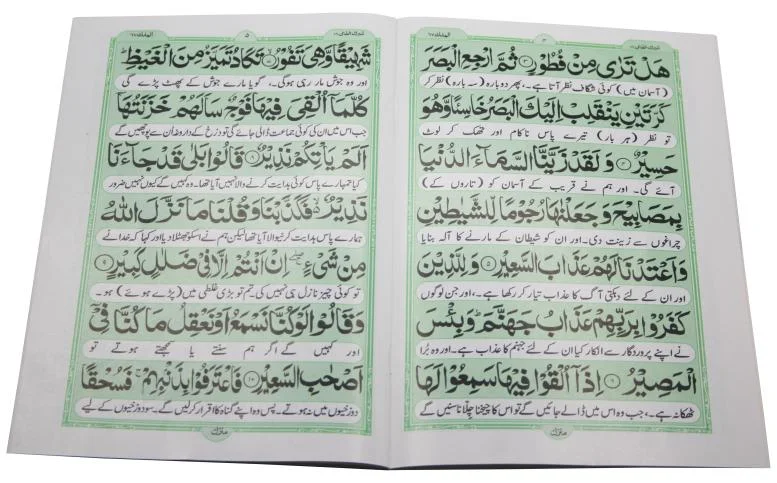 هَلْ تَرٰى مِنْ فُطُوْرٍ ۳ ثُمَّ ارْجِعِ الْبَصَرَ
(آسمان میں) کوئی شگاف نظر آتا ہے۔ پھر دوبارہ (سہ بارہ) نظر کر
كَرَّتَيْنِ يَنْقَلِبْ اِلَيْكَ الْبَصَرُ خَاسِئًا وَّهُوَ
تو نظر (ہر بار) تیرے پاس ناکام اور تھک کر لوٹ
حَسِيْرٌ ۴ وَلَقَدْ زَيَّنَّا السَّمَآءَ الدُّنْيَا
آئے گی۔ اور ہم نے قریب کے آسمان کو (تاروں کے)
بِمَصَابِيْحَ وَجَعَلْنٰهَا رُجُوْمًا لِّلشَّيٰطِيْنِ
چراغوں سے زینت دی۔ اور ان کو شیطان کے مارنے کا آلہ بنایا
وَاَعْتَدْنَا لَهُمْ عَذَابَ السَّعِيْرِ ۵ وَلِلَّذِيْنَ
اور ان کے لئے دہکتی آگ کا عذاب تیار کر رکھا ہے۔ اور جن لوگوں
كَفَرُوْا بِرَبِّهِمْ عَذَابُ جَهَنَّمَ وَبِئْسَ
نے اپنے پروردگار سے انکار کیا ان کے لئے جہنم کا عذاب ہے۔ اور وہ برا
الْمَصِيْرُ ۶ اِذَآ اُلْقُوْا فِيْهَا سَمِعُوْا لَهَا
ٹھکانہ ہے۔ جب وہ اس میں ڈالے جائیں گے تو اس کا چیخنا چلانا سنیں گے
منزل
الملك ۶۷
۵
شَهِيْقًا وَّهِيَ تَفُوْرُ ۷ تَكَادُ تَمَيَّزُ مِنَ الْغَيْظِ
اور وہ جوش مار رہی ہوگی۔ گویا مارے جوش کے پھٹ پڑے گی
كُلَّمَآ اُلْقِيَ فِيْهَا فَوْجٌ سَاَلَهُمْ خَزَنَتُهَآ
جب اس میں ان کی کوئی جماعت ڈالی جائے گی تو دوزخ کے داروغہ ان سے پوچھیں گے
اَلَمْ يَاْتِكُمْ نَذِيْرٌ ۸ قَالُوْا بَلٰى قَدْ جَآءَنَا
کیا تمہارے پاس کوئی ہدایت کرنے والا نہیں آیا تھا۔ وہ کہیں گے کیوں نہیں ضرور
نَذِيْرٌ فَكَذَّبْنَا وَقُلْنَا مَا نَزَّلَ اللّٰهُ
ہمارے پاس ہدایت کرنے والا آیا تھا لیکن ہم نے اسکو جھٹلا دیا اور کہا کہ خدا نے
مِنْ شَيْءٍ اِنْ اَنْتُمْ اِلَّا فِيْ ضَلٰلٍ كَبِيْرٍ ۹
تو کوئی چیز نازل ہی نہیں کی۔ تم تو بڑی غلطی میں (پڑے ہوئے) ہو۔
وَقَالُوْا لَوْ كُنَّا نَسْمَعُ اَوْ نَعْقِلُ مَا كُنَّا فِيْٓ
اور کہیں گے اگر ہم سنتے یا سمجھتے ہوتے تو
اَصْحٰبِ السَّعِيْرِ ۱۰ فَاعْتَرَفُوْا بِذَنْۢبِهِمْ فَسُحْقًا
دوزخیوں میں نہ ہوتے۔ پس وہ اپنے گناہ کا اقرار کر لیں گے۔ سو دوزخیوں کے لیے
منزل